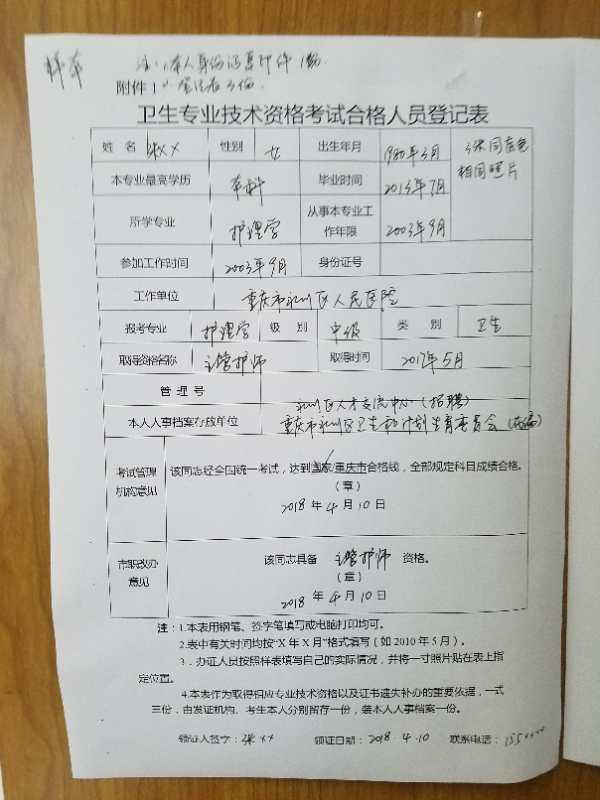 样本 注:1本人身份证复印件1份
附件1 2登记表3份
卫生专业技术资格考试合格人员登记表
姓 名 张XX 性别 女 出生年月 1980年3月 3张同底色
本专业最高学历 本科 毕业时间 2013年7月 相同照片
所学专业 护理学 从事本专业工作年限 2003年9月
参加工作时间 2003年9月 身份证号
工作单位 重庆市永川区人民医院
报考专业 护理学 级 别 中级 类 别 卫生
取得资格名称 主管护师 取得时间 2017年5月
管 理 号
永川区人才交流中心(招聘)
本人人事档案存放单位 重庆市永川区卫生和计划生育委员会(在编)
考试管理机构意见 该同志经全国统一考试,达到国家/重庆市合格线,全部规定科目成绩合格。
(章)
2018 年 4 月 10 日
市职改办意见 该同志具备 主管护师 资格。
(章)
2018 年 4 月 10 日
注:1.本表用钢笔、签字笔填写或电脑打印均可。
2.表中有关时间均按“X 年 X 月”格式填写(如 2010 年 5 月)。
3.办证人员按照样表填写自己的实际情况,并将一寸照片贴在表上指
定位置。
4.本表作为取得相应专业技术资格以及证书遗失补办的重要依据,一式
三份,由发证机构、考生本人分别留存一份,装本人人事档案一份。
领证人签字:张XX 领证日期:2018.4.10 联系电话:155XXXX